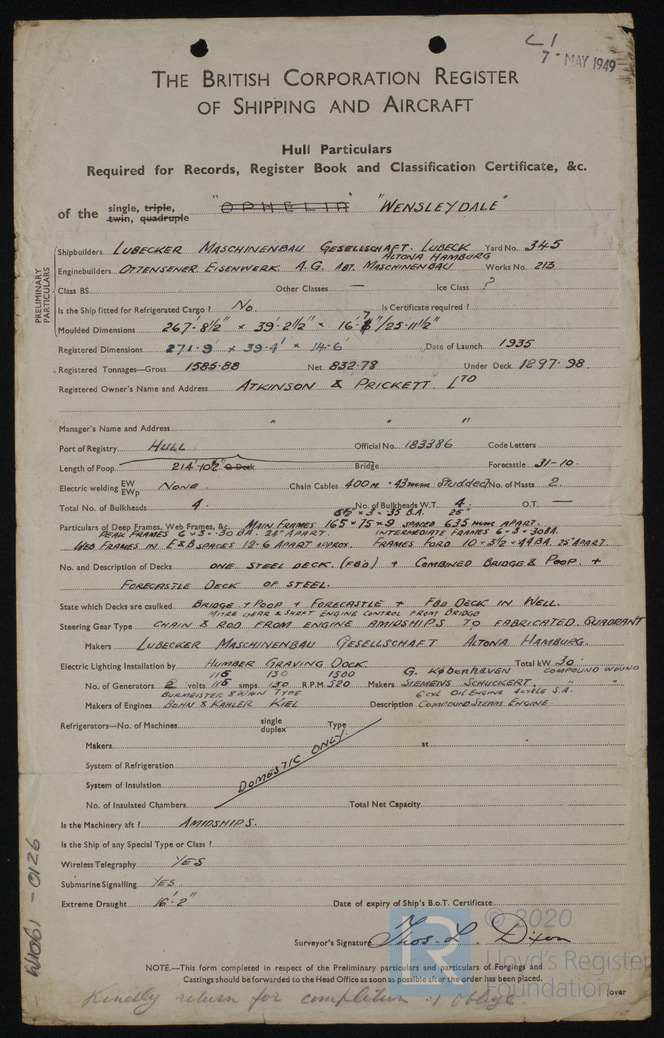 L1
7 - MAY 1949
THE BRITISH CORPORATION REGISTER
OF SHIPPING AND AIRCRAFT
Hull Particulars
Required for Records, Register Book and Classification Certificate, &c.
of the single, triple, twin, quadruple "OPHELIA" "WENSLEYDALE"
PRELIMINARY PARTICULARS
Shipbuilders LUBECKER MASCHINENBAU GESELLSCHAFT. LUBECK Yard No. 345
ALTONA HAMBURG
Enginebuilders OTTENSENER EISENWERK A.G. ABT. MASCHINENBAU Works No. 213
Class BS Other Classes — Ice Class ?
Is the Ship fitted for Refrigerated Cargo? No. Is Certificate required?
Moulded Dimensions 267'-8½" × 39'-2½" × 16'-7"/25'-11½"
Registered Dimensions 271.9' × 39.4' × 14.6' Date of Launch 1935
Registered Tonnages—Gross 1585.88 Net 832.78 Under Deck 1297.98.
Registered Owner's Name and Address ATKINSON & PRICKETT. LTD
Manager's Name and Address " " "
Port of Registry HULL Official No. 183386 Code Letters
Length of Poop 214'-10½" Q Deck Bridge Forecastle 31-10.
Electric welding EW EWp NONE Chain Cables 400M. 43mm Studded No. of Masts 2.
Total No. of Bulkheads 4. No. of Bulkheads W.T. 4. O.T. —
6½ × 3 × 35 B.A. 25"
Particulars of Deep Frames, Web Frames, &c. MAIN FRAMES 165 × 75 × 9 SPACED 635 mm APART.
PEAK FRAMES 6 × 3 × 30 BA. 24" APART. INTERMEDIATE FRAMES 6 × 3 × 30 BA.
WEB FRAMES IN E & B SPACES 12-6 APART APPROX. FRAMES FORD 10 × 3½ × 44 BA 25" APART.
No. and Description of Decks ONE STEEL DECK. (FBD) + COMBINED BRIDGE & POOP. +
FORECASTLE DECK OF STEEL.
State which Decks are caulked BRIDGE + POOP + FORECASTLE + FBD DECK IN WELL.
MITRE GEAR & SHAFT ENGINE CONTROL FROM BRIDGE
Steering Gear Type CHAIN & ROD FROM ENGINE AMIDSHIPS TO FABRICATED QUADRANT
Makers LUBECKER MASCHINENBAU GESELLSCHAFT ALTONA HAMBURG.
Electric Lighting Installation by HUMBER GRAVING DOCK. Total kW 30
115 130 1500 G. KØBENHAVEN COMPOUND WOUND
No. of Generators 2 volts 115 amps 130 R.P.M. 520 Makers SIEMENS SCHUCKERT. " "
BURMEISTER & WAIN TYPE 6 CYL OIL ENGINE 4 CYCLE S.A.
Makers of Engines BOHN & KAHLER KIEL Description COMPOUND STEAM ENGINE.
Refrigerators—No. of Machines single duplex Type
Makers at
System of Refrigeration
DOMESTIC ONLY.
System of Insulation
No. of Insulated Chambers Total Net Capacity
Is the Machinery aft? AMIDSHIPS.
Is the Ship of any Special Type or Class?
Wireless Telegraphy YES
Submarine Signalling YES
Extreme Draught 16'-2" Date of expiry of Ship's B.o.T. Certificate
Surveyor's Signature Thos. L. Dixon
NOTE.—This form completed in respect of the Preliminary particulars and particulars of Forgings and
Castings should be forwarded to the Head Office as soon as possible after the order has been placed.
Kindly return for completion & oblige.
[over
© 2020
Lloyd's Register
Foundation